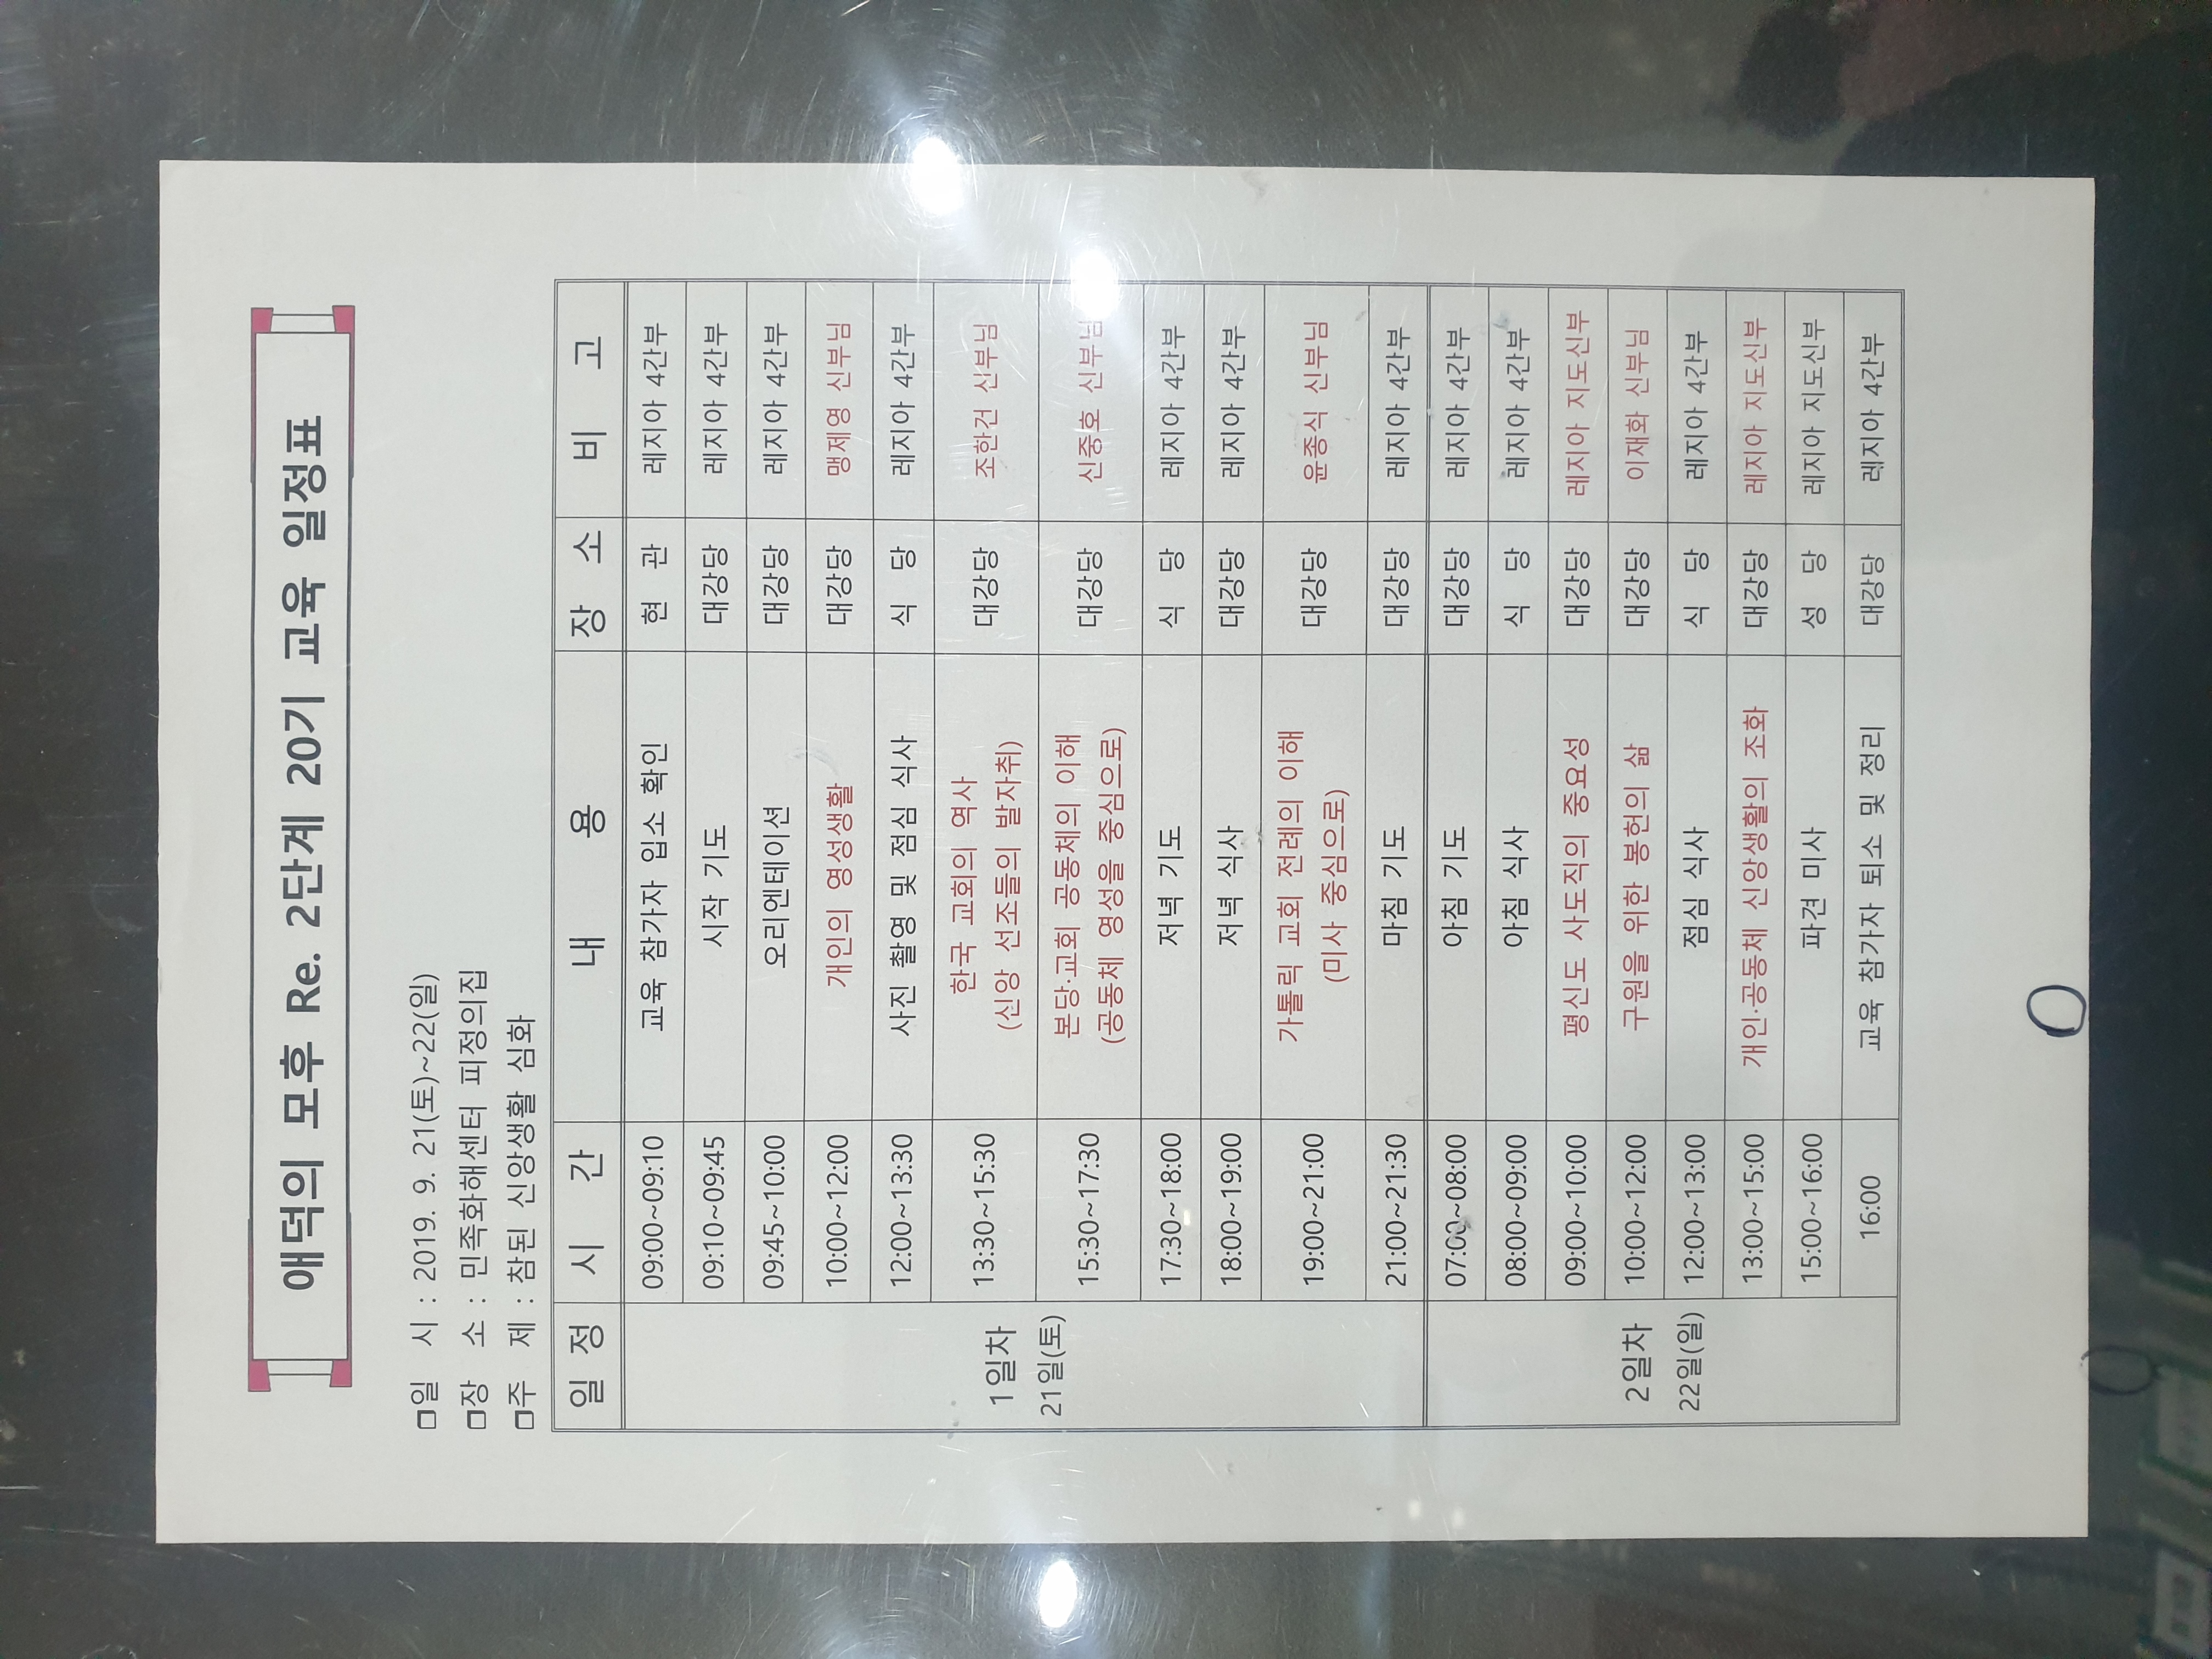 애덕의 모후 Re. 2단계 20기 교육 일정표
□일 시 : 2019. 9. 21(토)~22(일)
□장 소 : 민족화해센터 피정의집
□주 제 : 참된 신앙생활 심화
일 정 시 간 내 용 장 소 비 고
1일차
21일(토)
09:00~09:10 교육 참가자 입소 확인 현 관 레지아 4간부
09:10~09:45 시작 기도 대강당 레지아 4간부
09:45~10:00 오리엔테이션 대강당 레지아 4간부
10:00~12:00 개인의 영성생활 대강당 맹제영 신부님
12:00~13:30 사진 촬영 및 점심 식사 식 당 레지아 4간부
13:30~15:30 한국 교회의 역사
(신앙 선조들의 발자취) 대강당 조한건 신부님
15:30~17:30 본당·교회 공동체의 이해
(공동체 영성을 중심으로) 대강당 신중호 신부님
17:30~18:00 저녁 기도 식 당 레지아 4간부
18:00~19:00 저녁 식사 대강당 레지아 4간부
19:00~21:00 가톨릭 교회 전례의 이해
(미사 중심으로) 대강당 윤종식 신부님
21:00~21:30 마침 기도 대강당 레지아 4간부
2일차
22일(일)
07:00~08:00 아침 기도 대강당 레지아 4간부
08:00~09:00 아침 식사 식 당 레지아 4간부
09:00~10:00 평신도 사도직의 중요성 대강당 레지아 지도신부
10:00~12:00 구원을 위한 봉헌의 삶 대강당 이재화 신부님
12:00~13:00 점심 식사 식 당 레지아 4간부
13:00~15:00 개인·공동체 신앙생활의 조화 대강당 레지아 지도신부
15:00~16:00 파견 미사 성 당 레지아 지도신부
16:00 교육 참가자 퇴소 및 정리 대강당 레지아 4간부